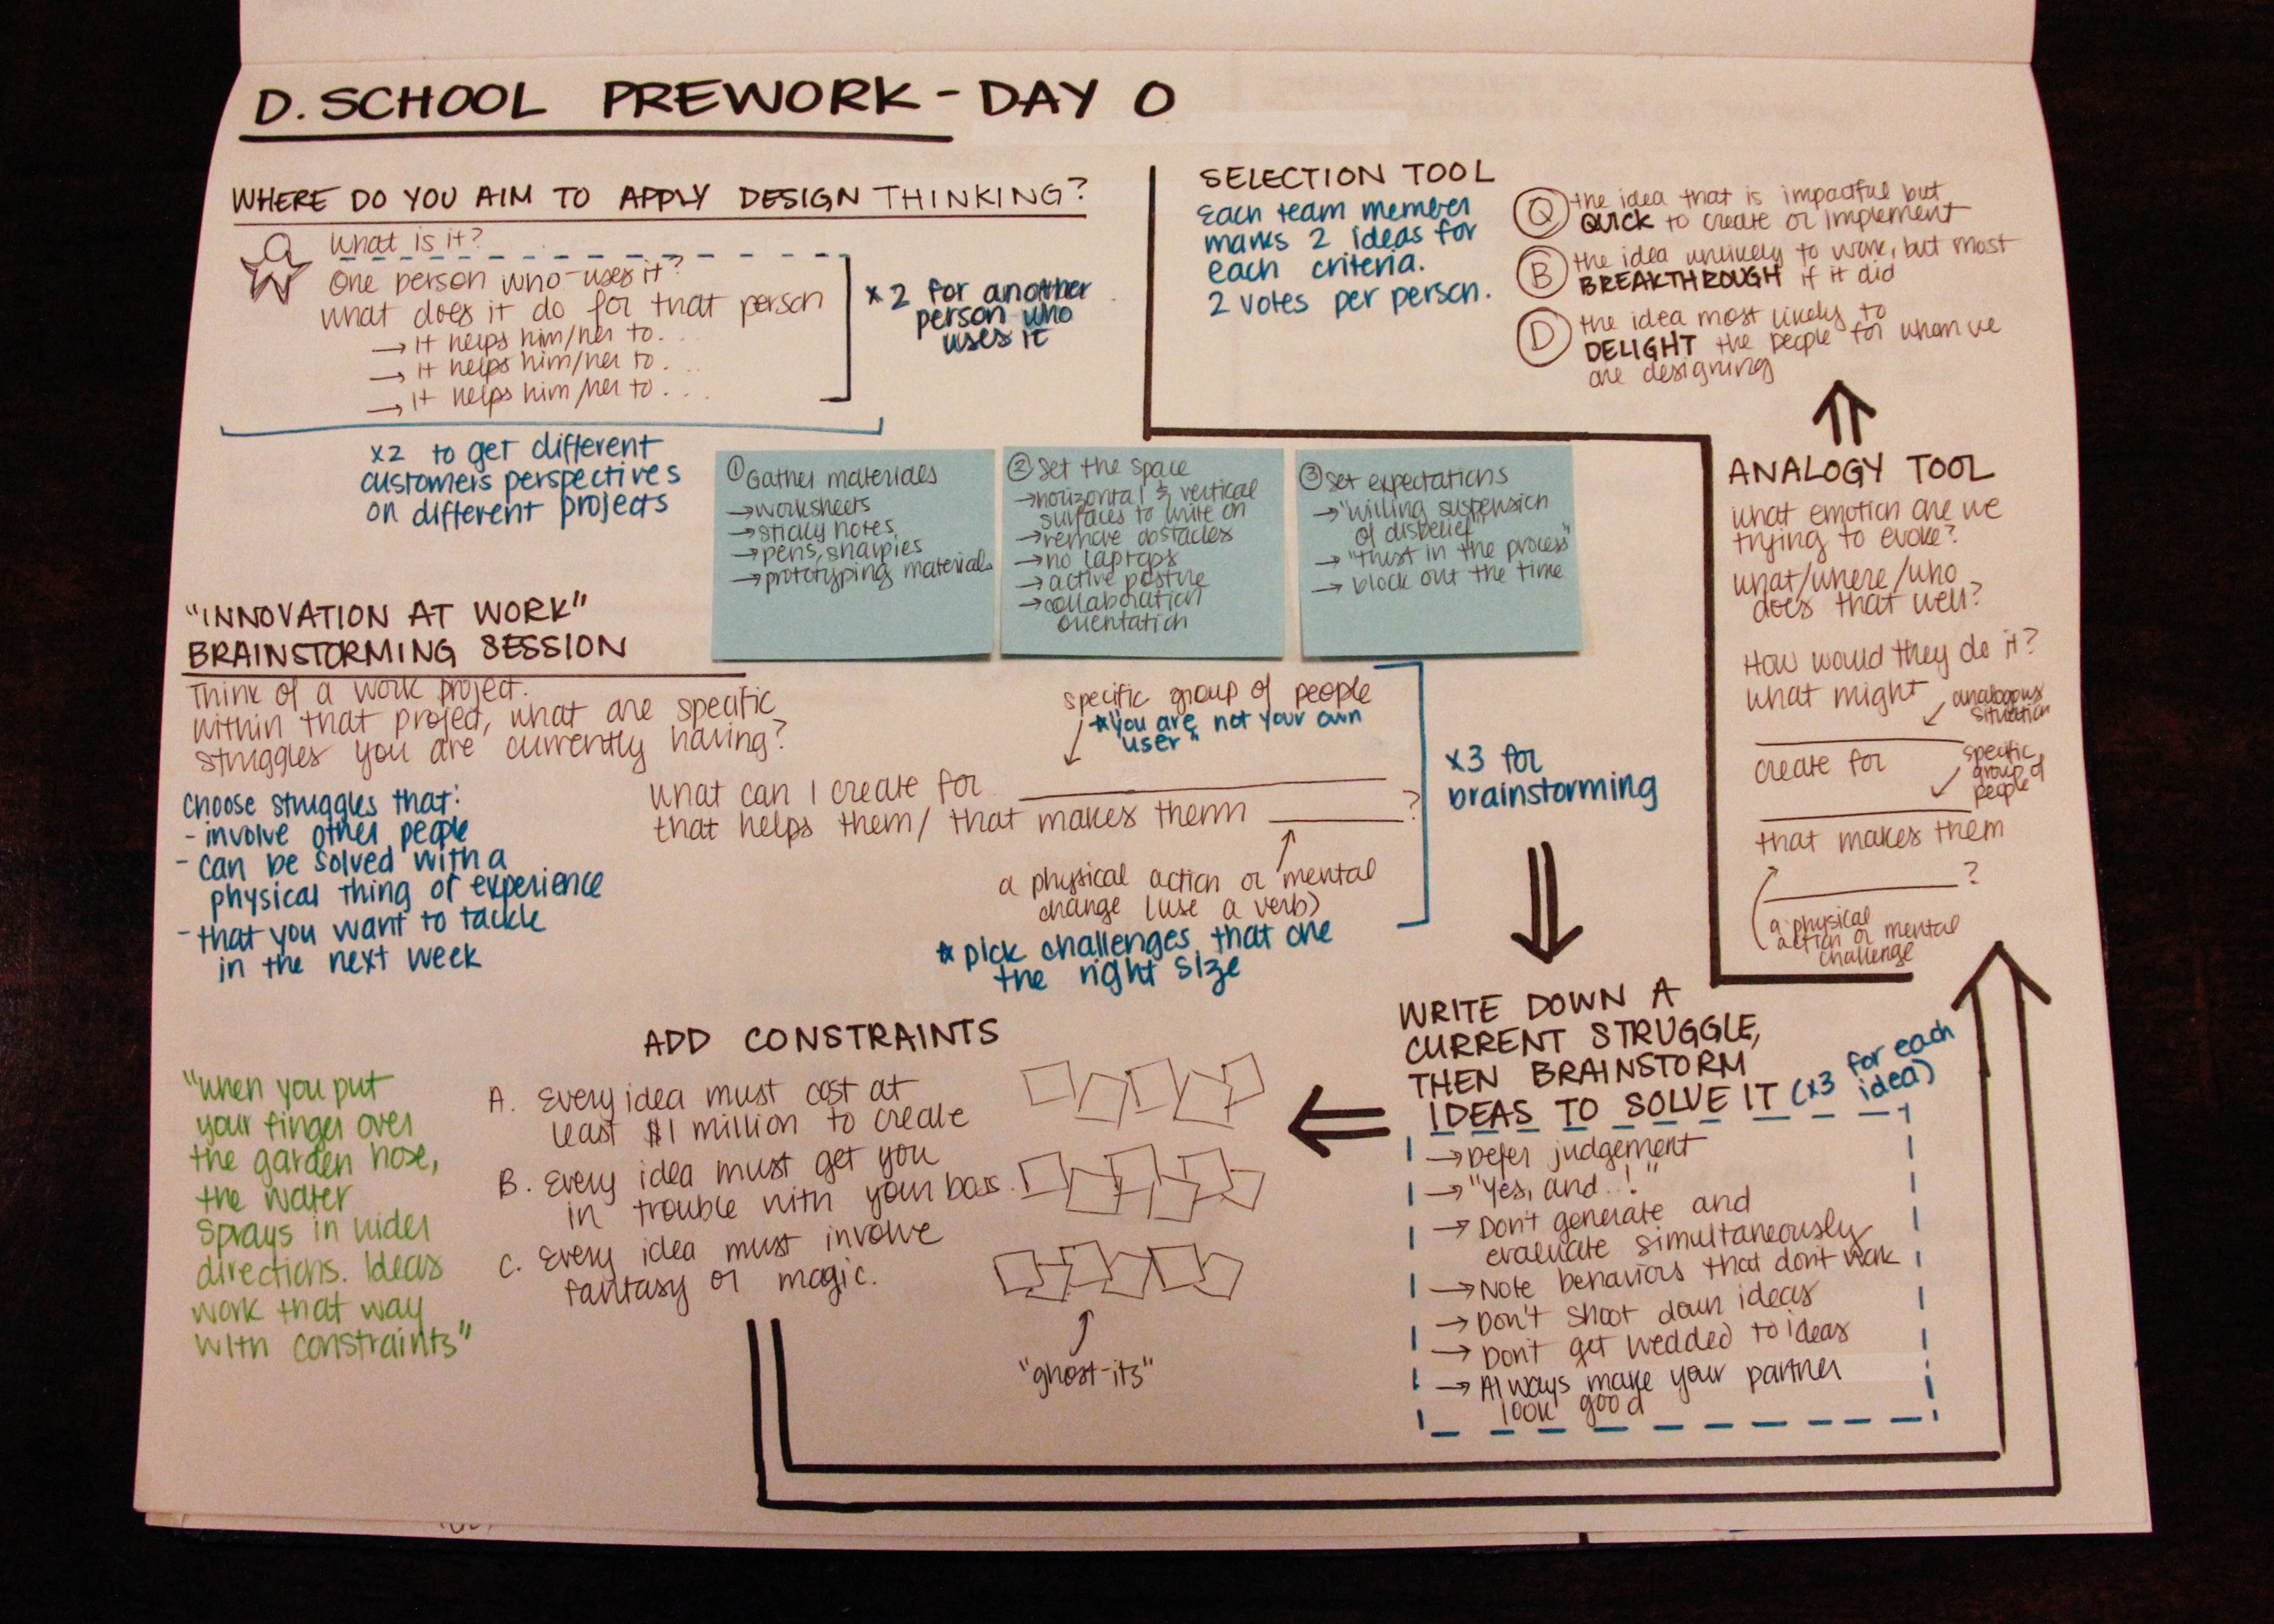 D. SCHOOL PREWORK - DAY 0
WHERE DO YOU AIM TO APPLY DESIGN THINKING?
What is it?
One person who uses it?
what does it do for that person
→ it helps him/her to...
→ it helps him/her to...
→ it helps him/her to...
x2 for another
person who
uses it
x2 to get different
customers perspectives
on different projects
SELECTION TOOL
Each team member
marks 2 ideas for
each criteria.
2 votes per person.
Q the idea that is impactful but
QUICK to create or implement
B the idea unlikely to work, but most
BREAKTHROUGH if it did
D the idea most likely to
DELIGHT the people for whom we
are designing
① Gather materials
→ worksheets
→ sticky notes
→ pens, sharpies
→ prototyping materials
② Set the space
→ horizontal & vertical
surfaces to write on
→ remove obstacles
→ no laptops
→ active posture
→ collaboration
orientation
③ Set expectations
→ "willing suspension
of disbelief"
→ "trust in the process"
→ block out the time
"INNOVATION AT WORK"
BRAINSTORMING SESSION
Think of a work project.
within that project, what are specific
struggles you are currently having?
choose struggles that:
- involve other people
- can be solved with a
physical thing or experience
- that you want to tackle
in the next week
specific group of people
* "you are not your own
user"
what can I create for ________
that helps them/ that makes them ________?
a physical action or mental
change (use a verb)
* pick challenges that are
the right size
x3 for
brainstorming
WRITE DOWN A
CURRENT STRUGGLE,
THEN BRAINSTORM
IDEAS TO SOLVE IT (x3 for each
idea)
→ Defer judgement
→ "Yes, and..!"
→ Don't generate and
evaluate simultaneously
→ Note behaviors that don't work
→ Don't shoot down ideas
→ Don't get wedded to ideas
→ Always make your partner
look good
ADD CONSTRAINTS
A. Every idea must cost at
least $1 million to create
B. Every idea must get you
in trouble with your boss.
C. Every idea must involve
fantasy or magic.
"ghost-its"
"when you put
your finger over
the garden hose,
the water
sprays in wider
directions. Ideas
work that way
with constraints"
ANALOGY TOOL
what emotion are we
trying to evoke?
what/where/who
does that well?
How would they do it?
what might
analogous
situation
________
create for
specific
group of
people
________
that makes them
________?
a physical
action or mental
challenge